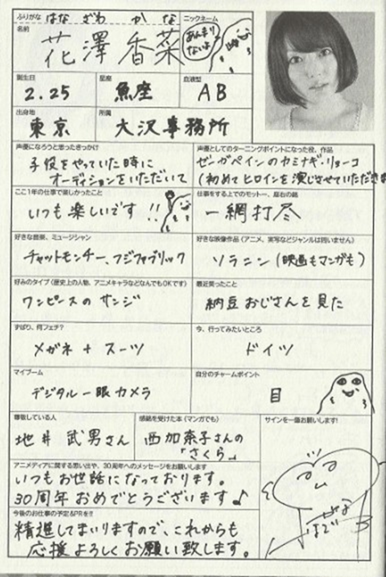 ふりがな はな ざわ か な
名前 花澤香菜
ニックネーム
あんまり
ないよ
誕生日 2.25
星座 魚座
血液型 AB
出身地 東京
所属 大沢事務所
声優になろうと思ったきっかけ
子役をやっていた時に
オーディションをいただいて
声優としてのターニングポイントになった役、作品
ゼーガペインのカミナギ・リョーコ
(初めてヒロインを演じさせていただき
ここ1年の仕事で楽しかったこと
いつも楽しいです!!
仕事をする上でのモットー、座右の銘
一網打尽
好きな音楽、ミュージシャン
チャットモンチー、フジファブリック
好きな映像作品(アニメ、実写などジャンルは問いません)
ソラニン(映画もマンガも)
好みのタイプ(歴史上の人物、アニメキャラなどなんでもOKです)
ワンピースのサンジ
最近笑ったこと
納豆おじさんを見た
ずばり、何フェチ?
メガネ+スーツ
今、行ってみたいところ
ドイツ
マイブーム
デジタル一眼カメラ
自分のチャームポイント
目
尊敬している人
地井武男さん
感銘を受けた本(マンガでも)
西加奈子さんの
「さくら」
サインを一筆お願いします!
アニメディアに関する思い出や、30周年へのメッセージをお願いします
いつもお世話になっております。
30周年おめでとうございます♪
今後のお仕事の予定&PRを!!
精進してまいりますので、これからも
応援よろしくお願い致します。